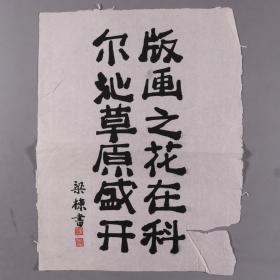 版画之花在科
尔沁草原盛开
梁栋書